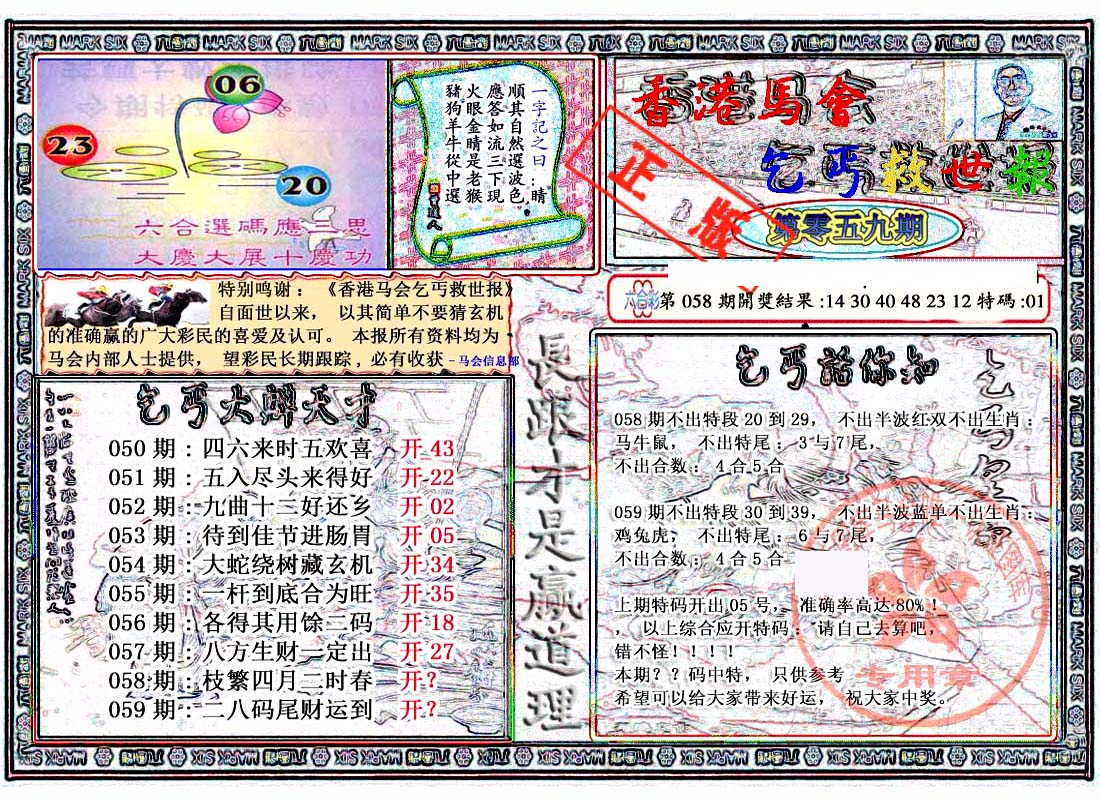 MARK SIX
06
23
20
六合選碼應三思
大慶大展十慶功
一字記之曰：晴
順其自然選波色
應答如流三下現
火眼金睛是老猴
豬狗羊牛從中選
香港馬會
乞丐救世報
第零五九期
正版
特别鸣谢：《香港马会乞丐救世报》
自面世以来， 以其简单不要猜玄机
的准确赢的广大彩民的喜爱及认可。 本报所有资料均为
马会内部人士提供， 望彩民长期跟踪，必有收获－马会信息部
六合彩第 058 期開獎結果:14 30 40 48 23 12 特碼:01
050 期：四六来时五欢喜 开 43
051 期：五入尽头来得好 开 22
052 期：九曲十三好还乡 开 02
053 期：待到佳节进肠胃 开 05
054 期：大蛇绕树藏玄机 开 34
055 期：一杆到底合为旺 开 35
056 期：各得其用馀三码 开 18
057 期：八方生财一定出 开 27
058 期：枝繁四月二时春 开？
059 期：二八码尾财运到 开？
長跟才是赢道理
乞丐話你知
058 期不出特段 20 到 29， 不出半波红双不出生肖：
马牛鼠， 不出特尾： 3 与 7尾，
不出合数： 4 合 5 合
059 期不出特段 30 到 39， 不出半波蓝单不出生肖：
鸡兔虎， 不出特尾： 6 与 7尾，
不出合数： 4 合 5 合
上期特码开出 05 号， 准确率高达 80%！
， 以上综合应开特码： 请自己去算吧，
错不怪！！！！
本期？？码中特， 只供参考
希望可以给大家带来好运， 祝大家中奖。
专用章